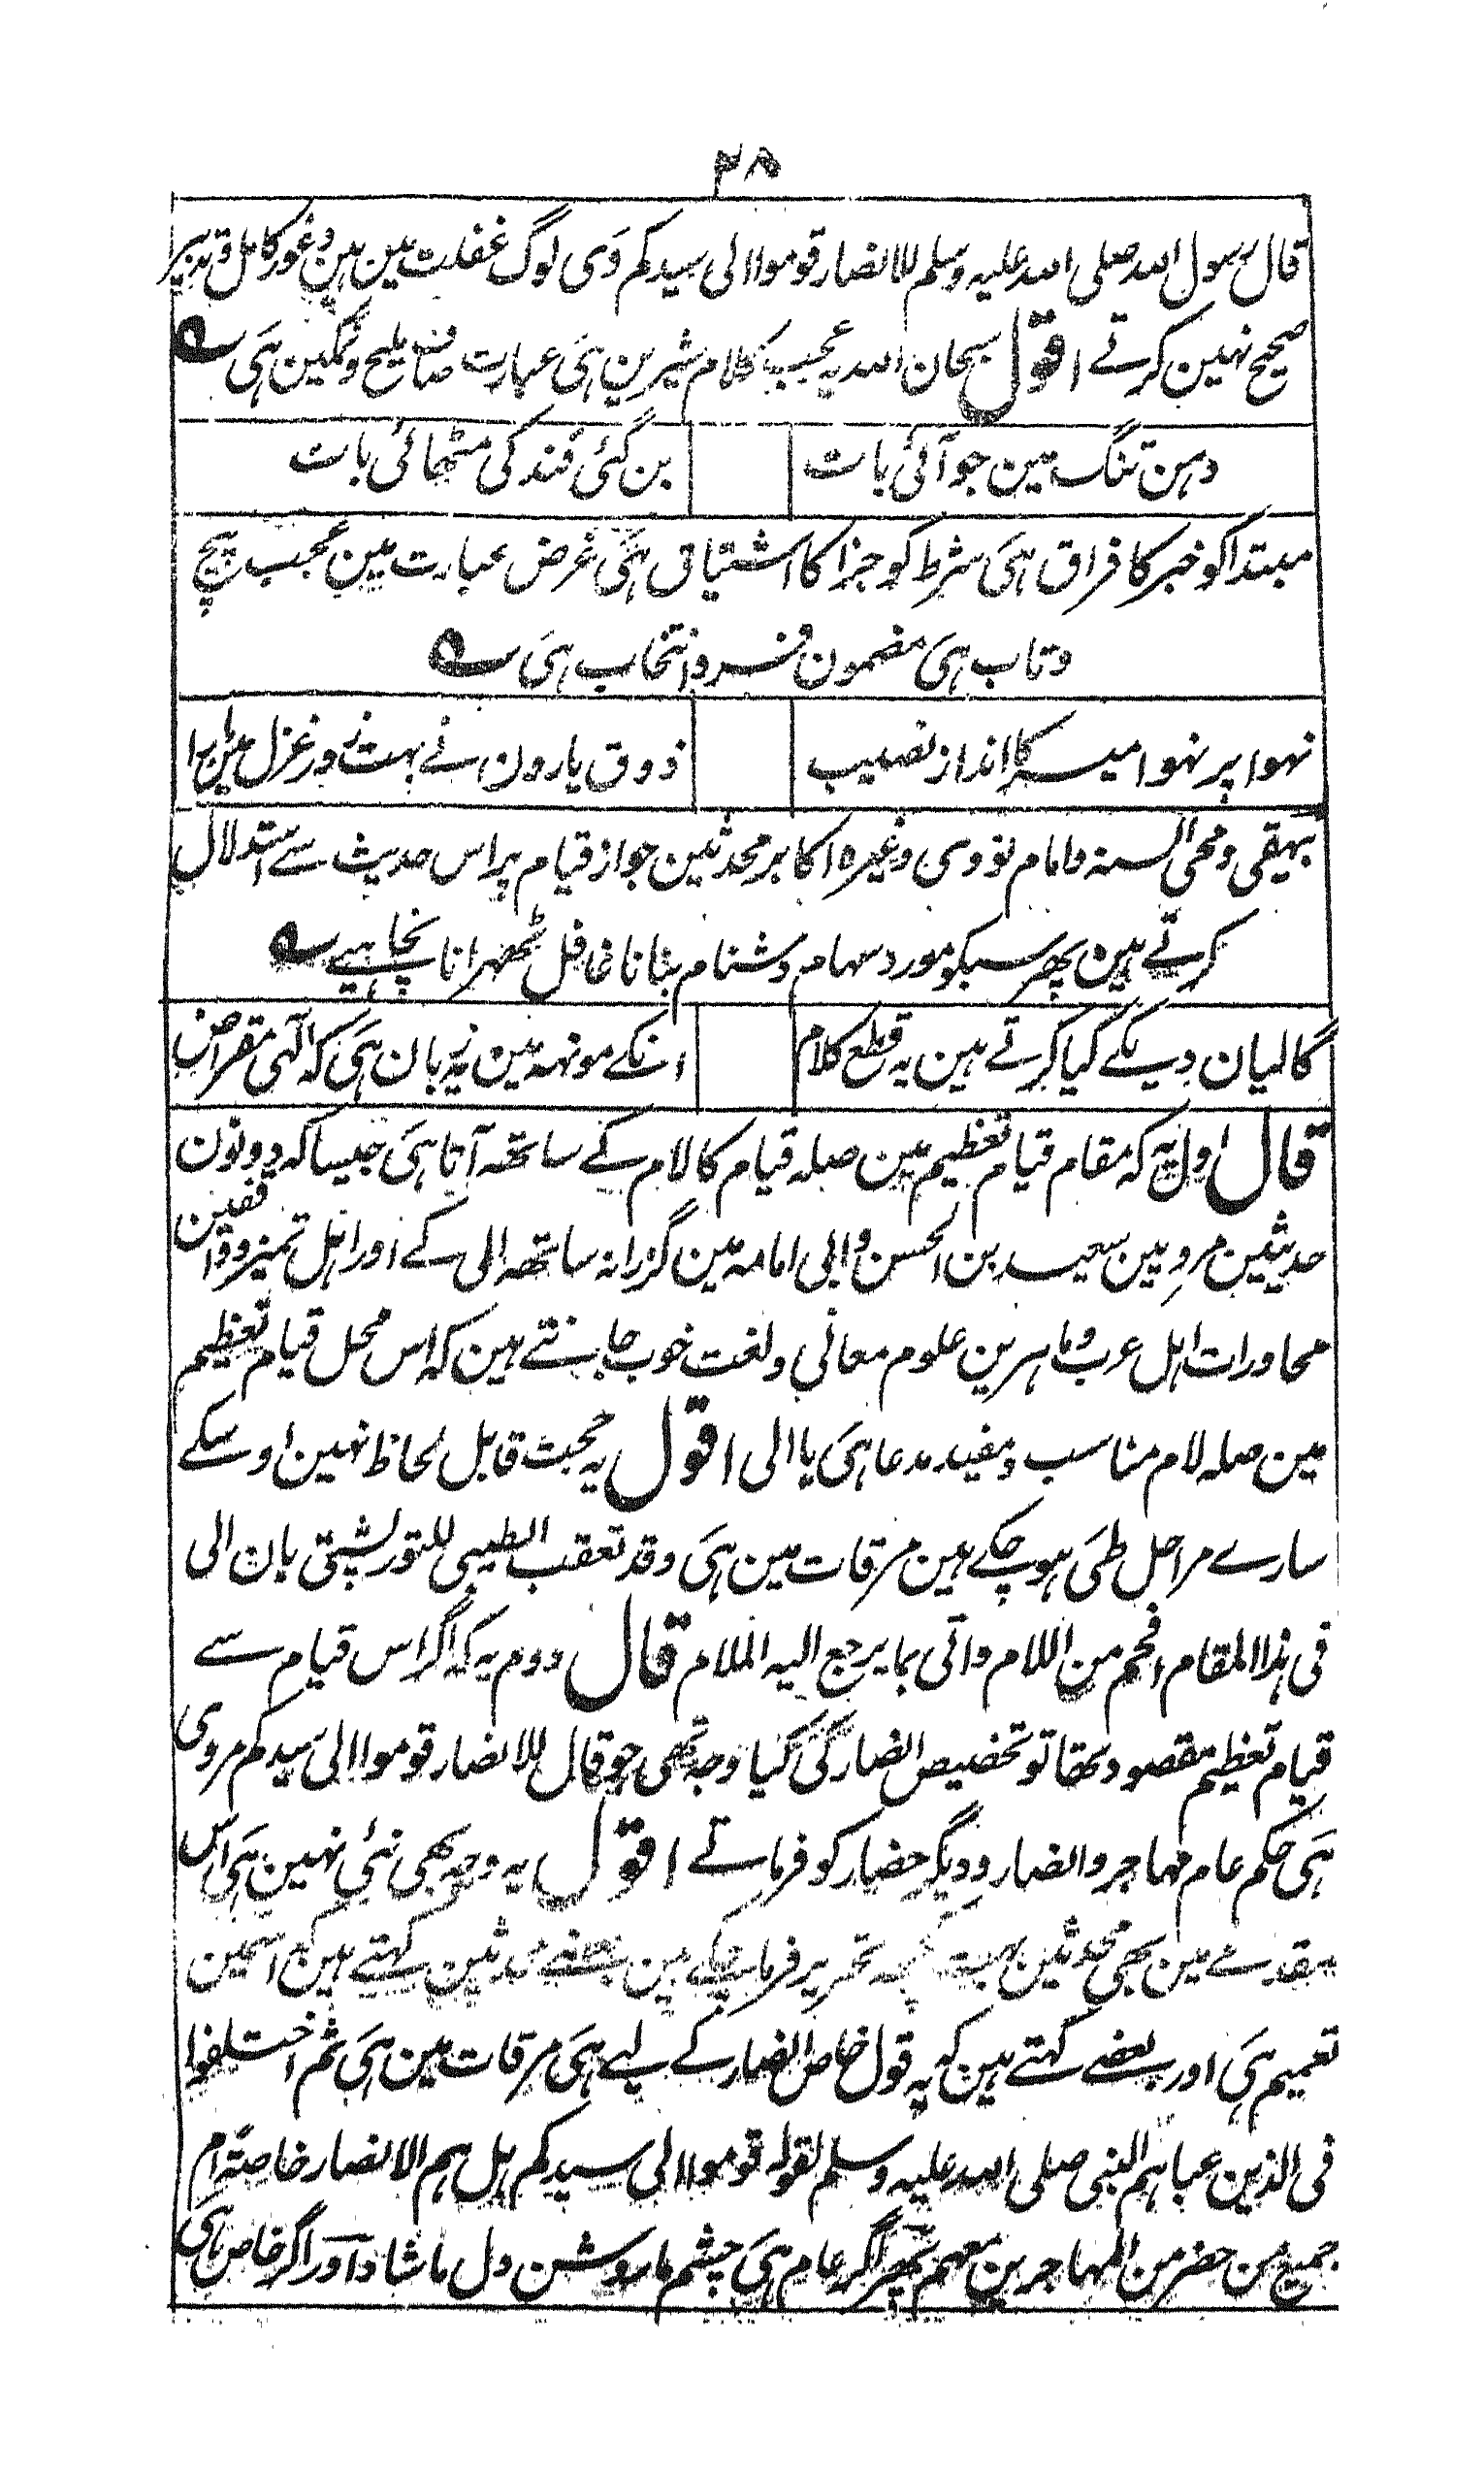 ۲۸
قال رسول اللہ صلی اللہ علیہ وسلم للانصار قوموا الی سیدکم وی لوگ غفلت مین ہین وغور کامل وتدبیر
صحیح نہین کرتے اقول سبحان اللہ یہ عجیب کلام شیرین ہی عبارت صاف ملیح ونمکین ہی
دہن تنگ مین جو آئی بات
بن گئی قند کی مٹھائی بات
مبتدا کو خبر کا فراق ہی شرط کو جزا کا اشتیاق ہی غرض عبارت مین عجب پیچ
وتاب ہی مضمون فرد انتخاب ہی
نہوا پر نہوا میر کا انداز نصیب
ذوق یارون نے بہت زور غزل مین مارا
بیہقی ومحی السنہ وامام نووی وغیرہ اکابر محدثین جواز قیام پر اس حدیث سے استدلال
کرتے ہین پھر سبکو مورد سہام دشنام بنانا غافل ٹھہرانا نچاہیے
گالیان دیکے کیا کرتے ہین یہ قطع کلام
انکے مونہہ مین یہ زبان ہی کہ الٰہی مقراض
قال اول یہ کہ مقام قیام تعظیم مین صلہ قیام کا لام کے ساتھہ آتا ہی جیسا کہ دونون
حدیثین مرویین سعید بن الحسن وابی امامہ مین گزرا نہ ساتھہ الی کے اور اہل تمیز وواقفین
محاورات اہل عرب وماہرین علوم معانی ولغت خوب جانتے ہین کہ اس محل قیام تعظیم
مین صلہ لام مناسب ومفید مدعا ہی یا الی اقول یہ حجت قابل لحاظ نہین اوسکے
سارے مراحل طی ہوچکے ہین مرقات مین ہی وقد تعقب الطیبی للتورپشتی بان الی
فی ہذا المقام افخم من اللام واتی بما یرجع الیہ الملام قال دوم یہ کہ اگر اس قیام سے
قیام تعظیم مقصود تھا تو تخصیص انصار کی کیا وجہ تھی جو قال للانصار قوموا الی سیدکم مروی
ہی حکم عام مہاجر وانصار ودیگر حضار کو فرماتے اقول یہ وجہ بھی نئی نہین ہی اس
مقدمے مین بھی محدثین بہت کچھہ تحریر فرما چکے ہین بعضے محدثین کہتے ہین کہ اسمین
تعمیم ہی اور بعضے کہتے ہین کہ یہ قول خاص انصار کے لیے ہی مرقات مین ہی ثم اختلفوا
فی الذین عناہم النبی صلی اللہ علیہ وسلم لقولہ قوموا الی سیدکم ہل ہم الانصار خاصتہ ام
جمیع من حضر من المہاجرین معہم پھر اگر عام ہی چشم ما روشن دل ما شاد اور اگر خاص ہی